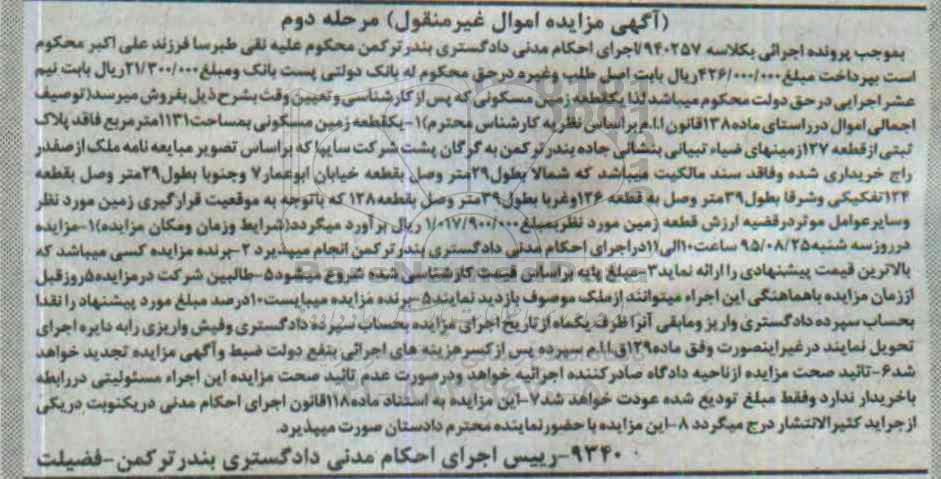 (آگهی مزایده اموال غیرمنقول) مرحله دوم
بموجب پرونده اجرائی بکلاسه ۹۴۰۲۵۷/اجرای احکام مدنی دادگستری بندرترکمن محکوم علیه نقی طبرسا فرزند علی اکبر محکوم
است بپرداخت مبلغ۴۲۶/۰۰۰/۰۰۰ریال بابت اصل طلب وغیره درحق محکوم له بانک دولتی پست بانک ومبلغ۲۱/۳۰۰/۰۰۰ریال بابت نیم
عشراجرایی درحق دولت محکوم میباشد لذا یکقطعه زمین مسکونی که پس از کارشناسی وتعیین وقت بشرح ذیل بفروش میرسد(توصیف
اجمالی اموال درراستای ماده۱۳۸قانون ا.ا.م براساس نظریه کارشناس محترم)۱-یکقطعه زمین مسکونی بمساحت۱۱۳۱مترمربع فاقد پلاک
ثبتی ازقطعه ۱۲۷زمینهای ضیاء تبیانی بنشانی جاده بندرترکمن به گرگان پشت شرکت سایپا که براساس تصویر مبایعه نامه ملک ازصفدر
راج خریداری شده وفاقد سند مالکیت میباشد که شمالا بطول۲۹متر وصل بقطعه خیابان ابوعمار۷ وجنوبا بطول۲۹متر وصل بقطعه
۱۳۴تفکیکی وشرقا بطول۳۹متر وصل به قطعه ۱۲۶وغربا بطول۳۹متر وصل بقطعه۱۲۸ که باتوجه به موقعیت قرارگیری زمین مورد نظر
وسایرعوامل موثردرقضیه ارزش قطعه زمین مورد نظربمبلغ۱/۰۱۷/۹۰۰/۰۰۰ ریال برآورد میگردد(شرایط وزمان ومکان مزایده)۱-مزایده
درروزسه شنبه۹۵/۰۸/۲۵ ساعت۱۰الی۱۱دراجرای احکام مدنی دادگستری بندرترکمن انجام میپذیرد ۲-برنده مزایده کسی میباشد که
بالاترین قیمت پیشنهادی را ارائه نماید۳-مبلغ پایه براساس قیمت کارشناسی شده شروع میشود۵-طالبین شرکت درمزایده۵روزقبل
اززمان مزایده باهماهنگی این اجراء میتوانند ازملک موصوف بازدید نمایند۵-برنده مزایده میبایست۱۰درصد مبلغ مورد پیشنهاد را نقدا
بحساب سپرده دادگستری واریز ومابقی آنرا ظرف یکماه ازتاریخ اجرای مزایده بحساب سپرده دادگستری وفیش واریزی رابه دایره اجرای
تحویل نمایند درغیراینصورت وفق ماده۱۲۹ق.ا.ا.م سپرده پس ازکسرهزینه های اجرائی بنفع دولت ضبط وآگهی مزایده تجدید خواهد
شد۶-تائید صحت مزایده ازناحیه دادگاه صادرکننده اجرائیه خواهد ودرصورت عدم تائید صحت مزایده این اجراء مسئولیتی دررابطه
باخریدار ندارد وفقط مبلغ تودیع شده عودت خواهد شد۷-این مزایده به استناد ماده۱۱۸قانون اجرای احکام مدنی دریکنوبت دریکی
ازجراید کثیرالانتشار درج میگردد ۸-این مزایده باحضورنماینده محترم دادستان صورت میپذیرد.
۹۳۴۰-رییس اجرای احکام مدنی دادگستری بندرترکمن-فضیلت